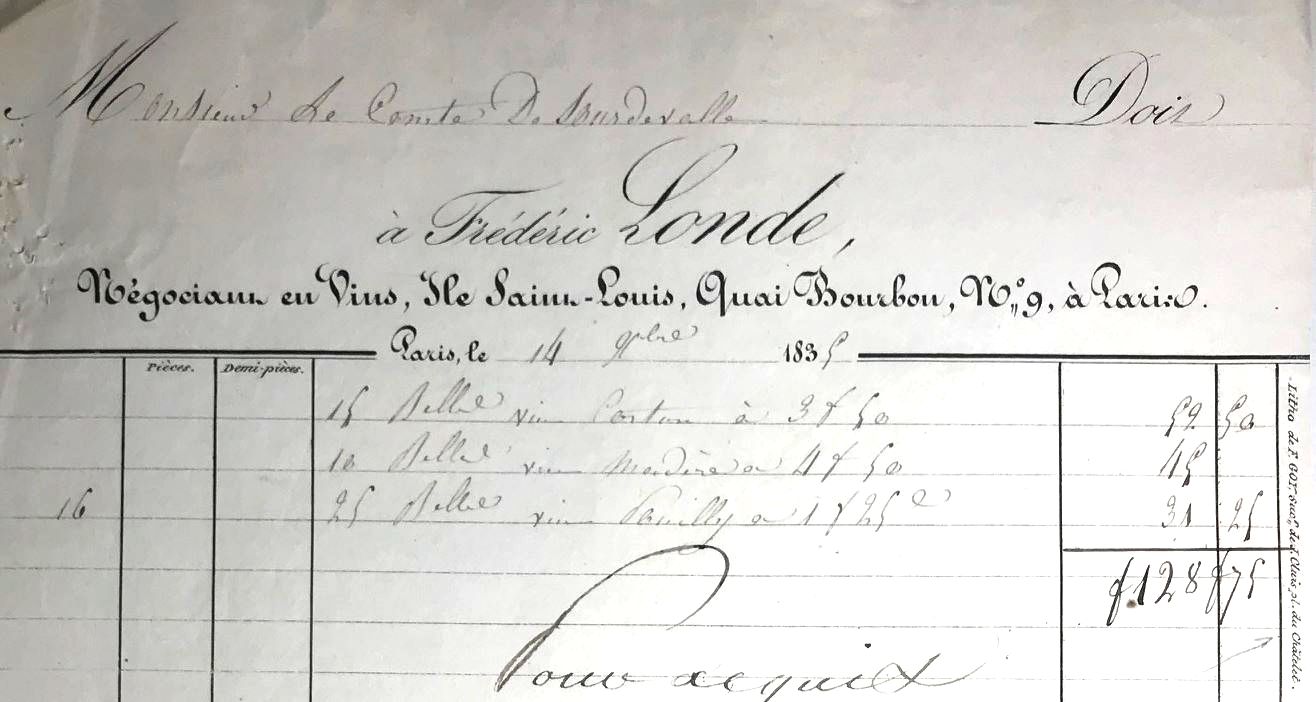 Monsieur Le Comte De Sourdevalle Doit
à Frédéric Londe,
Négociant en Vins, Ile Saint-Louis, Quai Bourbon, N.° 9, à Paris.
Paris, le 14 9bre 1835
Pièces. Demi-pièces.
15 Belles vin Corton à 3 f 50 52 50
10 Belles vin Madère a 4 f 50 45
16 25 Belles vin Pouilly a 1 f 25 c 31 25
f 128 f 75
Pour acquit
Litho de F. GOT. Succ.r de J. Cluis, pl. du Châtelet.